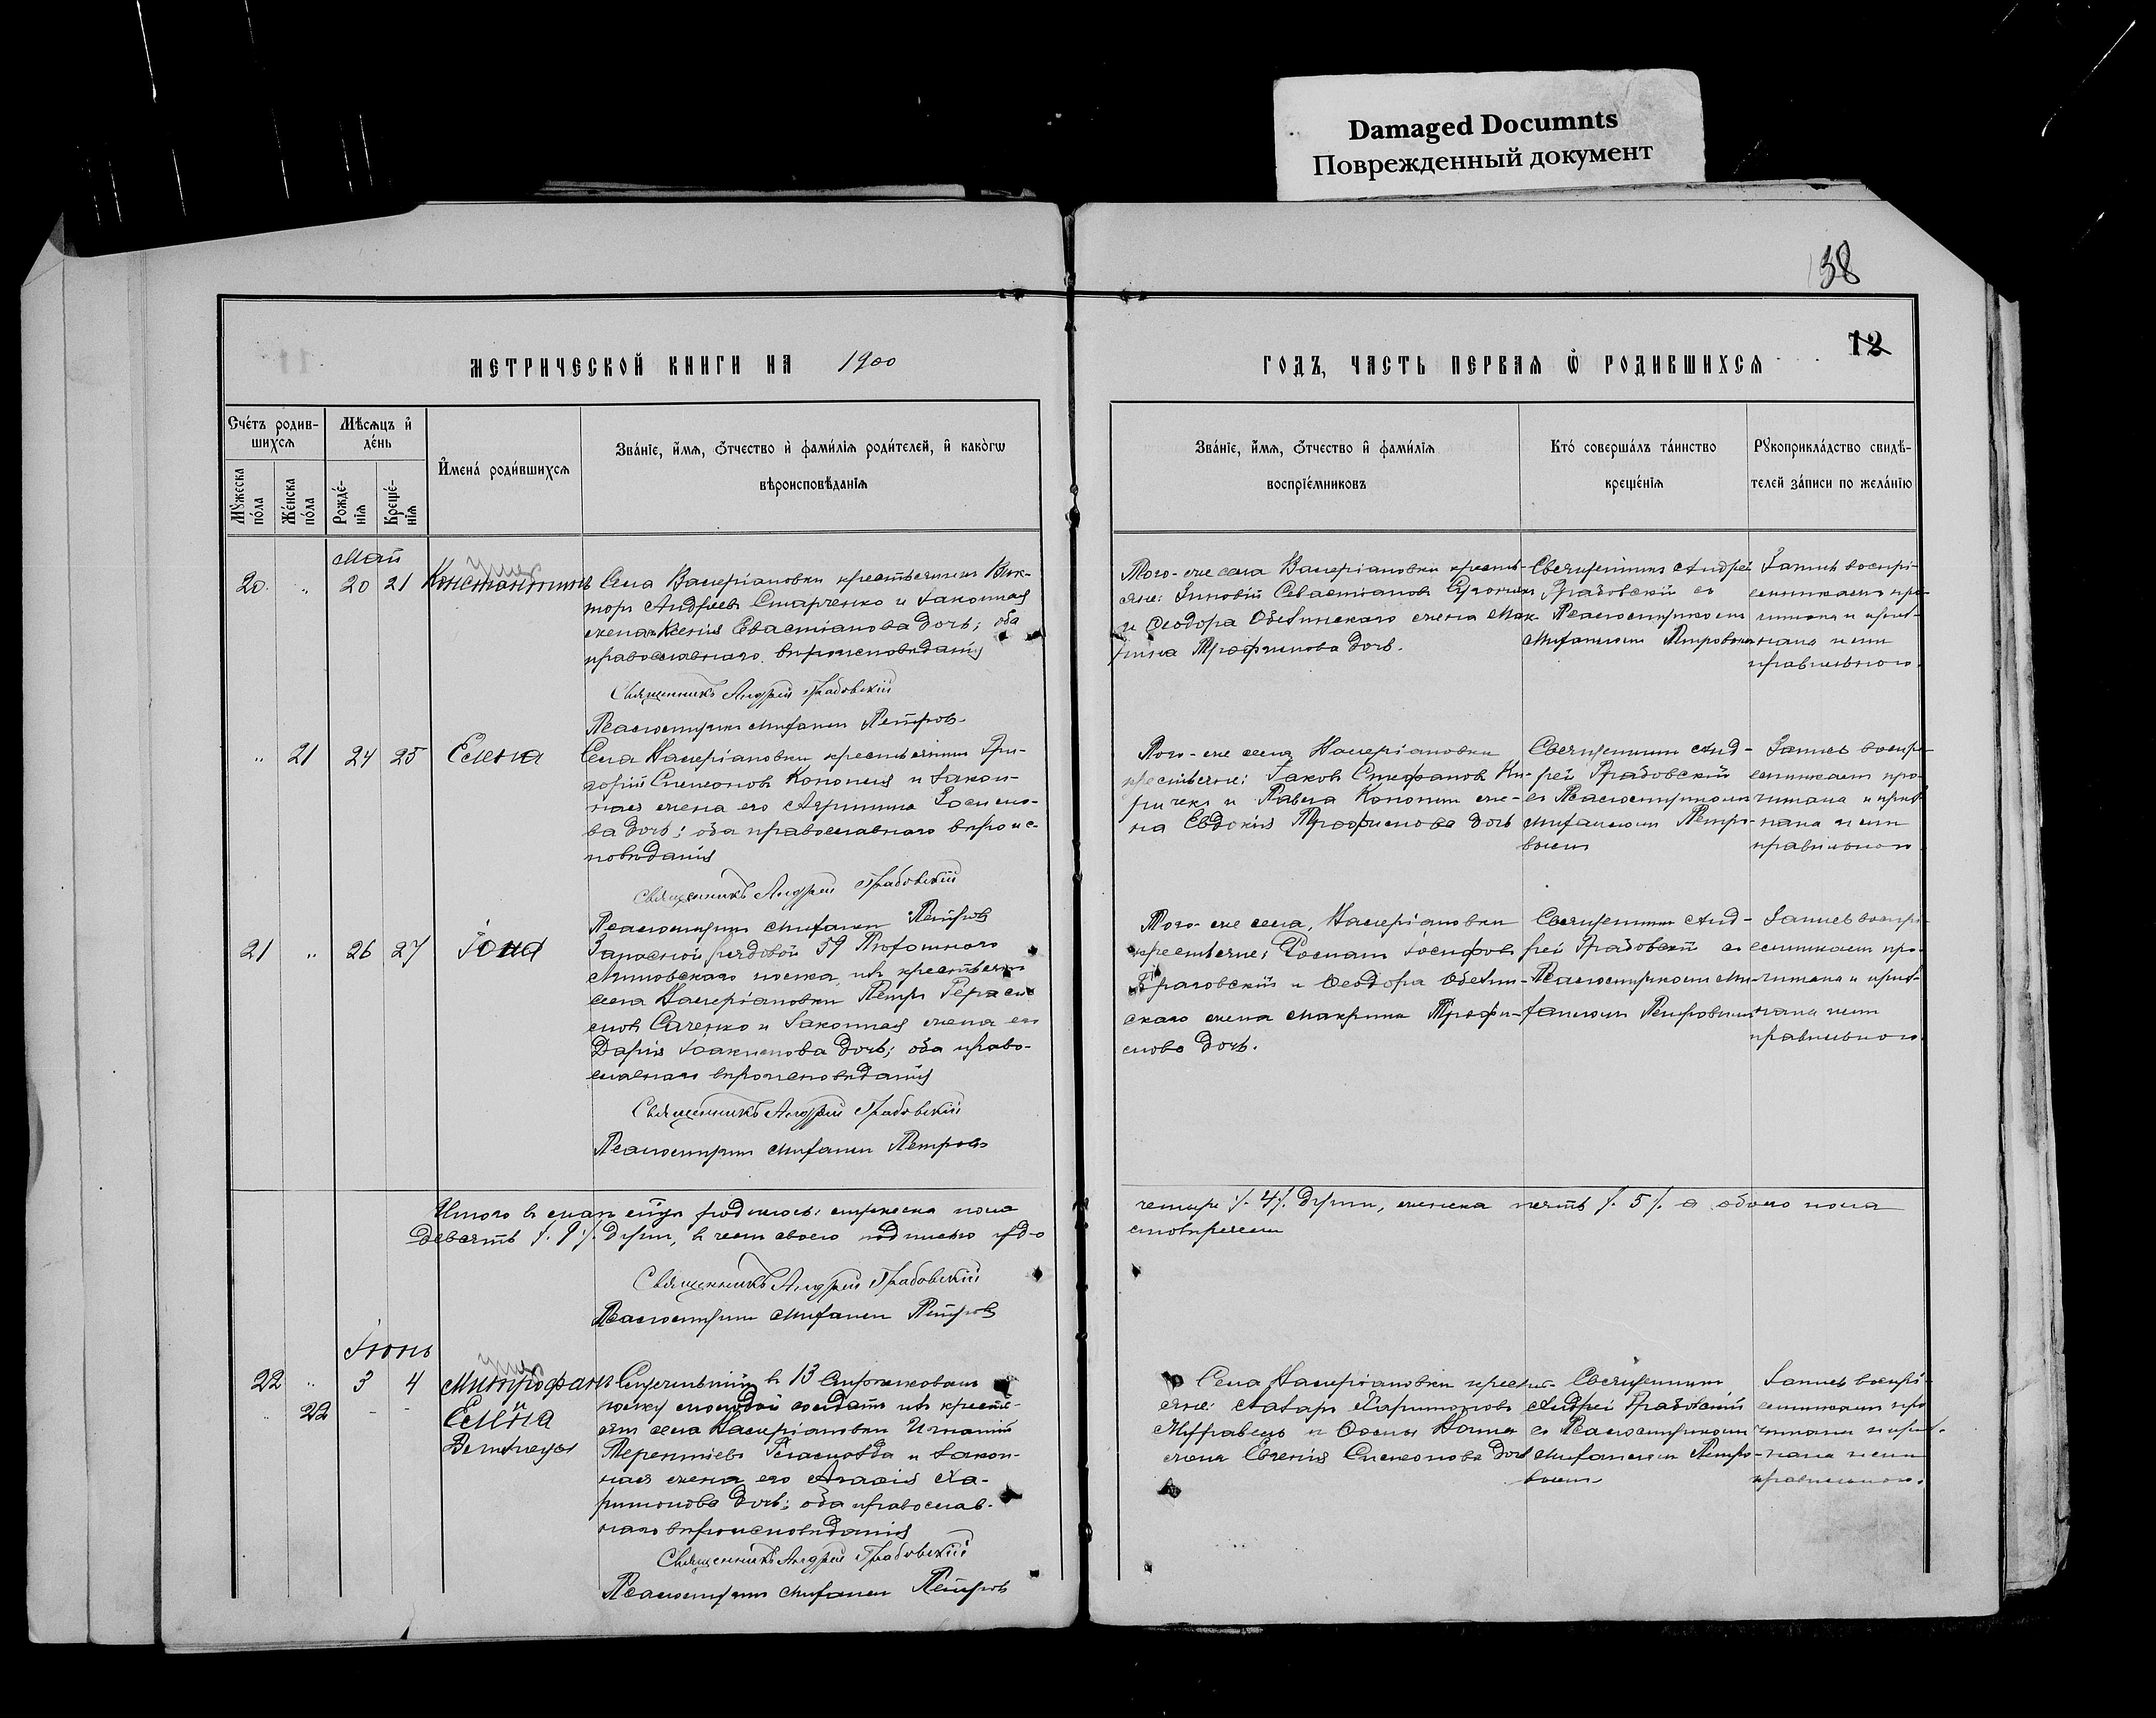 Damaged Documnts
Поврежденный документ
38
12
МЕТРИЧЕСКОЙ КНИГИ НА 1900
ГОДЪ, ЧАСТЬ ПЕРВАЯ Ѡ РОДИВШИХСЯ
Счетъ родив-
шихся
Мѣсяцъ и
день
Мужеска
пола
Женска
пола
Рожде-
нія
Креще-
нія
Имена родившихся
Званіе, имя, отчество и фамилія родителей, и какогѡ
вѣроисповѣданія
Званіе, имя, отчество и фамилія
воспріемниковъ
Кто совершалъ таинство
крещенія
Рукоприкладство свидѣ-
телей записи по желанію
Май
20 " 20 21 Константинъ
Села Валеріановки крестьянинъ Вик-
торъ Андреевъ Старченко и законная
жена Ксенія Севастіанова дочь; оба
православнаго вѣроисповѣданія
Священникъ Андрей Грабовскій
Псаломщикъ Митрофанъ Петровъ
Того-же села Валеріановки кресть-
яне: Зиновій Севастіановъ
и Ѳеодора жена Мак-
рина Трофимова дочь.
Священникъ Андрей
Грабовскій съ
Псаломщикомъ
Петровымъ
Запись воспрі-
емникамъ про-
читана и приз-
нана ими
правильною.
" 21 24 25 Елена
Села Валеріановки крестьянинъ Гри-
горій Симеоновъ Кононъ и закон-
ная жена его Агриппина
ва дочь; оба православнаго вѣроис-
повѣданія
Священникъ Андрей Грабовскій
Псаломщикъ Петровъ
Того-же села Валеріановки
крестьяне: Іаковъ Стефановъ Ки-
риченко и Павла Кононъ же-
на Евдокія Трофимова дочь
Священникъ Анд-
рей Грабовскій
съ Псаломщикомъ
Петро-
вымъ
Запись воспрі-
емникамъ про-
читана и приз-
нана ими
правильною
21 " 26 27 Іона
Запасной рядовой 59 Пѣхотнаго
Люблинскаго полка, изъ крестьянъ
села Валеріановки Петръ Гераси-
мовъ Саченко и законная жена его
Дарія Іоакимова дочь; оба право-
славнаго вѣроисповѣданія
Священникъ Андрей Грабовскій
Псаломщикъ Петровъ
Того-же села, Валеріановки
крестьяне: Іосифовъ
и Ѳеодора
скаго жена Макрина Трофи-
мова дочь.
Священникъ Анд-
рей Грабовскій съ
Псаломщикомъ
Петровымъ
Запись воспрі-
емникамъ про-
читана и приз-
нана ими
правильною
Итого въ маѣ родилось: мужеска пола
четыре /.4/. души, женска пять /.5/. а обоего пола
девять /.9/. душъ, въ чемъ своею подписью удо-
стовѣряемъ
Священникъ Андрей Грабовскій
Псаломщикъ Петровъ
Іюнь
22 " 3 4 Митрофанъ
" 22 - - и
Елена
Близнецы
въ 13 Стрѣлковомъ
полку молодой солдатъ изъ кресть-
янъ села Валеріановки Игнатій
Терентіевъ и закон-
ная жена его Ха-
ритонова дочь; оба православ-
наго вѣроисповѣданія
Священникъ Андрей Грабовскій
Псаломщикъ Петровъ
Села Валеріановки кресть-
яне: Харитоновъ
Журавель и
жена Евгенія Симеонова дочь
Священникъ
Андрей Грабовскій
съ Псаломщикомъ
Петро-
вымъ
Запись воспрі-
емникамъ про-
читана и приз-
нана ими
правильною.